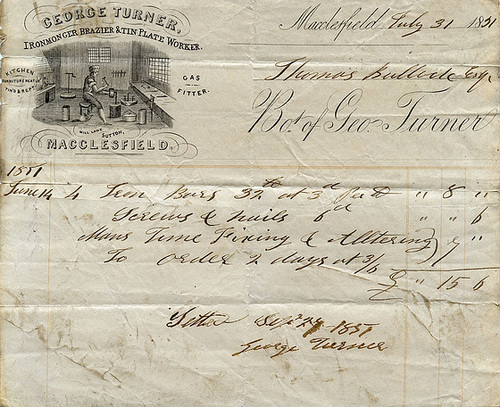 GEORGE TURNER,
IRONMONGER, BRAZIER & TIN PLATE WORKER.
KITCHEN
FURNITURE NEATLY
TINN'D & REPD.
GAS
FITTER.
MILL LANE
SUTTON,
MACCLESFIELD.
Macclesfield July 31 1851
Thomas Bullock Esqr
Bot. of Geo. Turner
1851
June 14 4 Iron Bars 32 lb at 3d " 8 "
Screws & nails 6d " " 6
Mans Time Fixing & Alltering
To order 2 days at 3/6 7 "
£ " 15 6
Settled Sepr 1851
George Turner